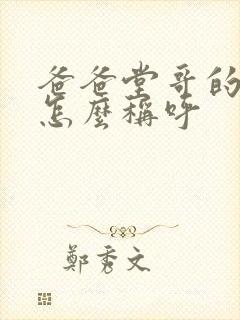 爸爸堂哥的
怎麼稱呼
鄭秀文